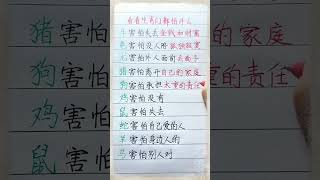 看看生肖们都怕什么
牛害怕失去金钱和财富
兔害怕没人陪孤独寂寞
龙害怕外人面前丢面子
猪害怕离开自己的家庭
狗害怕承担太重的责任
鸡害怕没有
鼠害怕失去
蛇害怕自己爱的人
羊害怕身边人的
马害怕别人对
猪害
狗害
鸡害
鼠害
的家庭
重的责任